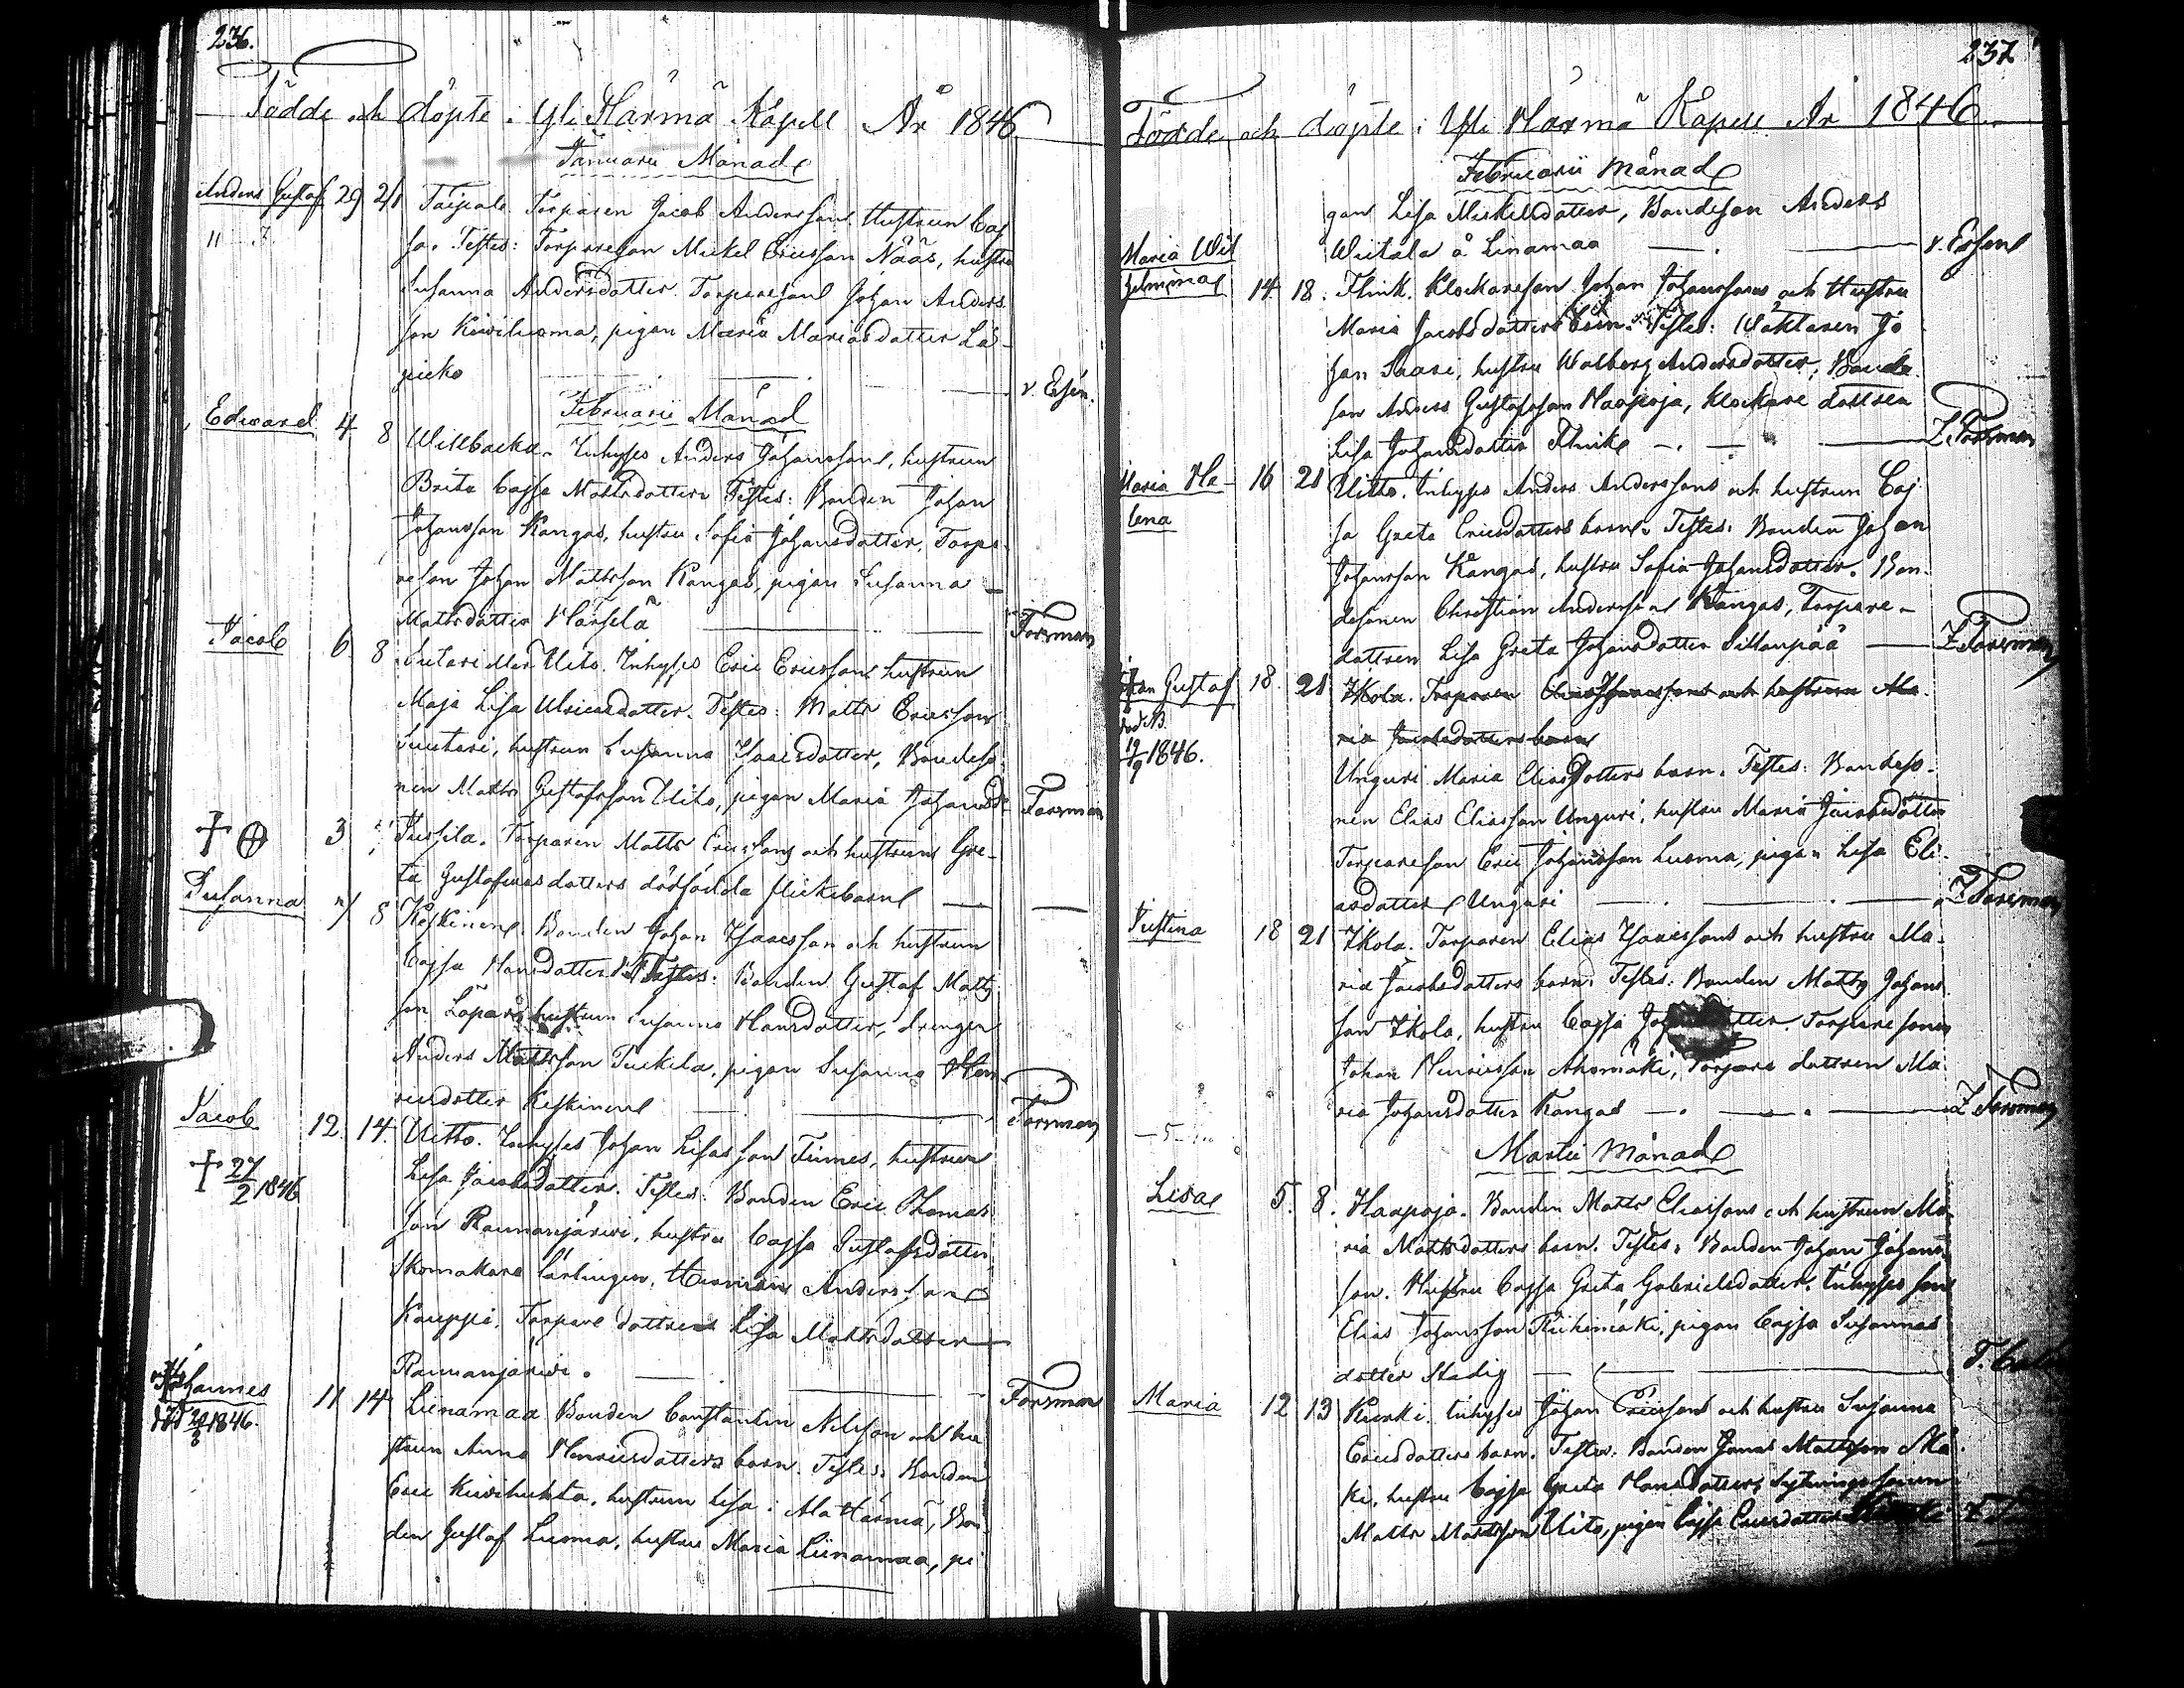 236.
Födde och döpte i Yli Härmä Kapell År 1846
Januarii Månad
Anders Gustaf 29 31 Taipale. Torparen Jacob Andersson Hustrun Caj
sa. Testes: Torpareson Mickel Ericsson Nääs, hustru
Susanna Andersdotter. Torpareson Johan Anders
son Kiviluoma, pigan Maria Mariasdotter La-
picko v. Essen.
Februarii Månad
Edward 4 8 Willbacka. Inhyses Anders Johansson, hustrun
Brita Cajsa Mattsdotter Testes: Bonden Johan
Johansson Kangas, hustru Sofia Johansdotter, Torpa-
reson Johan Mattsson Kangas, pigan Susanna
Mattsdotter Härsilä Forsman
Jacob 6 8 Uito. Inhyses Eric Ericsson hustrun
Maja Lisa Ulricasdotter. Testes: Matts Ericsson
Luutari, hustrun Susanna Isaacsdotter, Bondeso-
nen Matts Gustafsson Uito, pigan Maria Johansdr Forsman
3 Jussila. Torparen Matts Ericssons och hustruns Gre-
ta Gustafvasdotters dödfödda flickebarn
Susanna 7 8 Keskinen. Bonden Johan Isaacsson och hustrun
Cajsa Hansdotter Testes: Bonden Gustaf Matts
son Löpari, hustrun Susanna Hansdotter, drengen
Anders Mattsson Tuckila, pigan Susanna Hen-
ricsdotter Keskinen Forsman
Jacob 12 14 Uitto. Inhyses Johan Lisasson Fiimes, hustrun
† 27/2 1846 Lisa Jacobsdotter. Testes: Bonden Eric Thomas
son Raumanjärwi, hustru Cajsa Gustafsdotter,
Skomakare Lärlingen, Herman Andersson
Kauppi, Torpare dottren Lisa Mattsdotter
Raumanjärwi. Forsman
Johannes 11 14 Liinamaa Bonden Constantin Nilsson och hu
död 1846. strun Anna Henricsdotters barn. Testes: Bonden
Eric Kiwihuhta, hustrun Lisa i Ala Härmä, Bon-
den Gustaf Luoma, hustru Maria Liinamaa, pi
237
Födde och döpte i Yli Härmä Kapell År 1846
Februarii Månad
gan Lisa Mickelsdotter, Bondeson Anders
Wiitala å Linamaa v. Essen
Maria Wil
helmina 14 18. Flink. Klockareson Johan Johanssons och Hustru
Maria Jacobsdotters barn. Testes: Wäktaren Jo
han Saari, hustru Walborg Andersdotter, Bonde
son Anders Gustafsson Haapoja, Klockare dottren
Lisa Johansdotter Flink Z Forsman
Maria He-
lena 16 21 Uitto. Inhyses Anders Anderssons och hustrun Caj
sa Greta Ericsdotters barn. Testes: Bonden Johan
Johansson Kangas, hustru Sofia Johansdotter. Bon-
desonen Christian Andersson Kangas, Torpare-
dottren Lisa Greta Johansdotter Sillanpää Z Forsman
Johan Gustaf 18. 21 Ikola. Torparen Elias Isaacssons och hustrun Ma-
död d. ria Jacobsdotters barn
1846. Unguri Maria Eliasdotters barn. Testes: Bondeso-
nen Elias Eliasson Unguri, hustru Maria Jacobsdotter
Torpareson Eric Johansson Luoma, pigan Lisa Eli-
asdotter Unguri Z Forsman
Justina 18 21 Ikola. Torparen Elias Isaacssons och hustru Ma-
ria Jacobsdotters barn. Testes: Bonden Matts Johans
son Ikola, hustru Cajsa Torparesonen
Johan Henricsson Ahomäki, Torpare dottren Ma
ria Johansdotter Kangas Z Forsman
Martii Månad
Lisa 5. 8. Haapoja. Bonden Matts Eliassons och hustrun Ma-
ria Mattsdotters barn. Testes: Bonden Johan Johans
son. Hustru Cajsa Greta Gabrielsdotter. Inhyses son
Elias Johansson Riihimäki, pigan Cajsa Susannas
dotter Stadig
Maria 12 13 Kurki. Inhyses Johan Ericssons och hustru Susanna
Ericsdotters barn. Testes: Bonden Jonas Mattsson Mä
ki, hustru Cajsa Greta Hansdotter, Sytningssonen
Matts Mattsson Uito, pigan Cajsa Ericsdotter Kurki